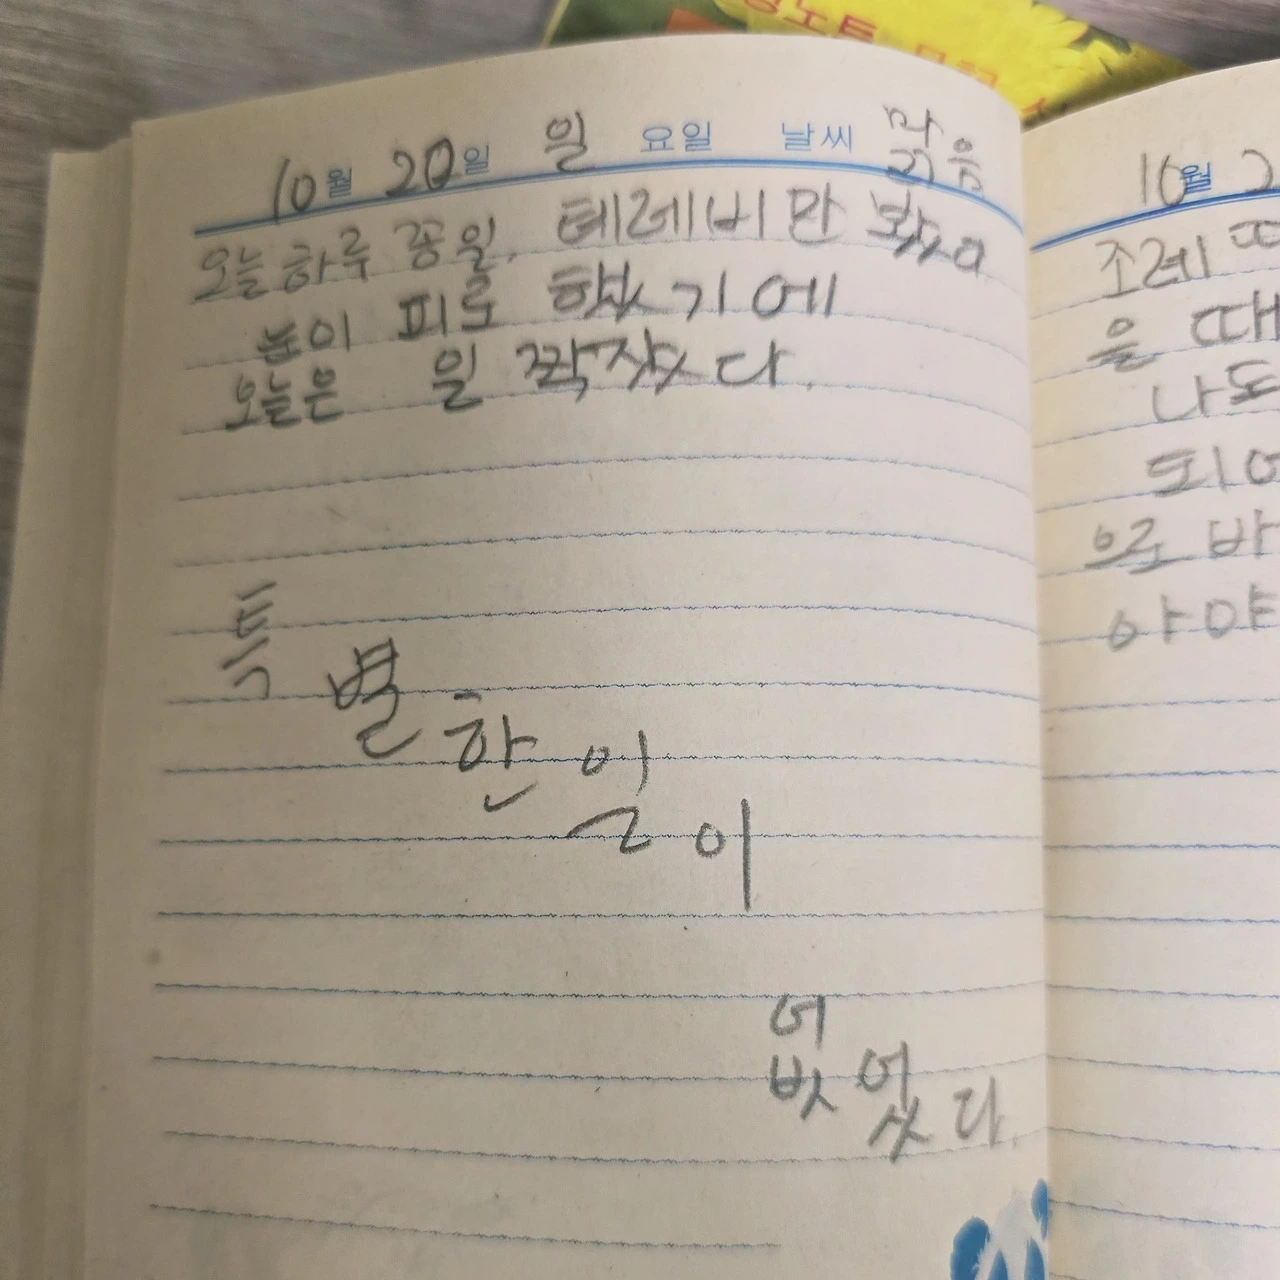 10월 20일 일 요일 날씨 맑음
오늘 하루 종일. 테레비만 봤다
눈이 피로 했기에
오늘은 일찍 잤다.
특별한 일이
없었다.
10월 2
조레
을 때
나도
되어
으로 바
아야